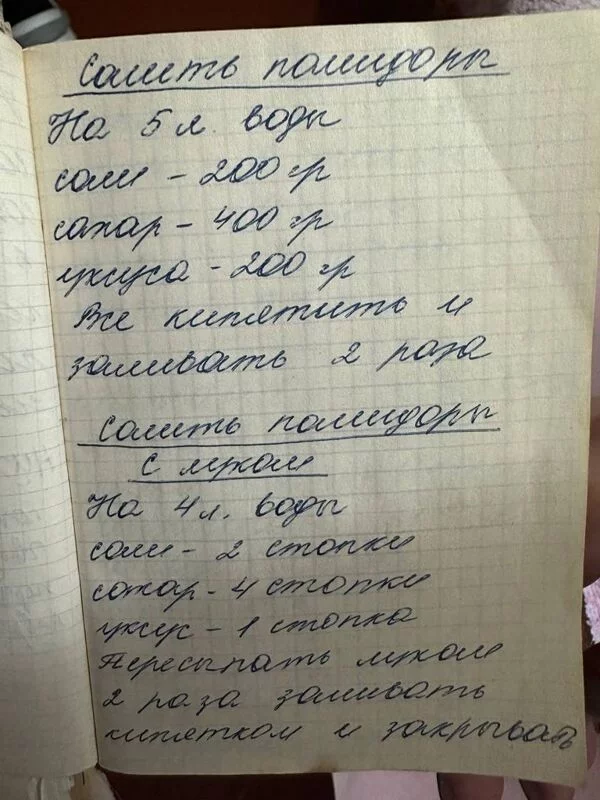 Солить помидоры
На 5 л. воды
соли - 200 гр
сахар - 400 гр
уксуса - 200 гр
Все кипятить и
заливать 2 раза
Солить помидоры
с луком
На 4 л. воды
соли - 2 стопки
сахар - 4 стопки
уксус - 1 стопка
Пересыпать луком
2 раза заливать
кипятком и закрывать